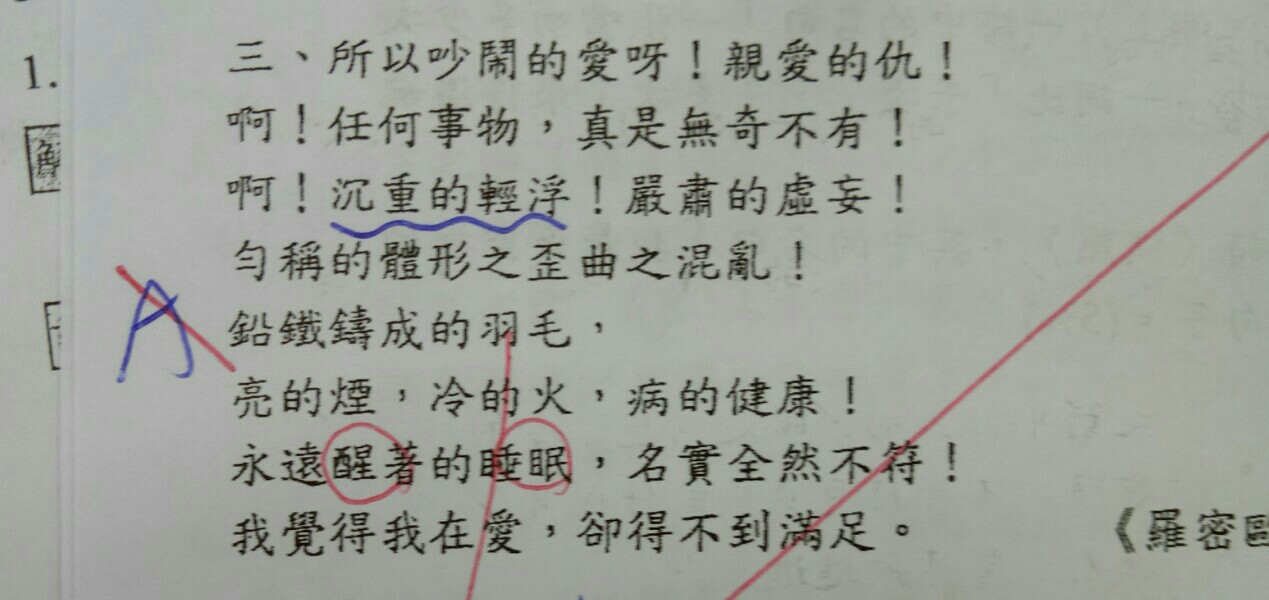 1.
三、所以吵鬧的愛呀！親愛的仇！
啊！任何事物，真是無奇不有！
啊！沉重的輕浮！嚴肅的虛妄！
勻稱的體形之歪曲之混亂！
A
鉛鐵鑄成的羽毛，
亮的煙，冷的火，病的健康！
永遠醒著的睡眠，名實全然不符！
我覺得我在愛，卻得不到滿足。
《羅密歐